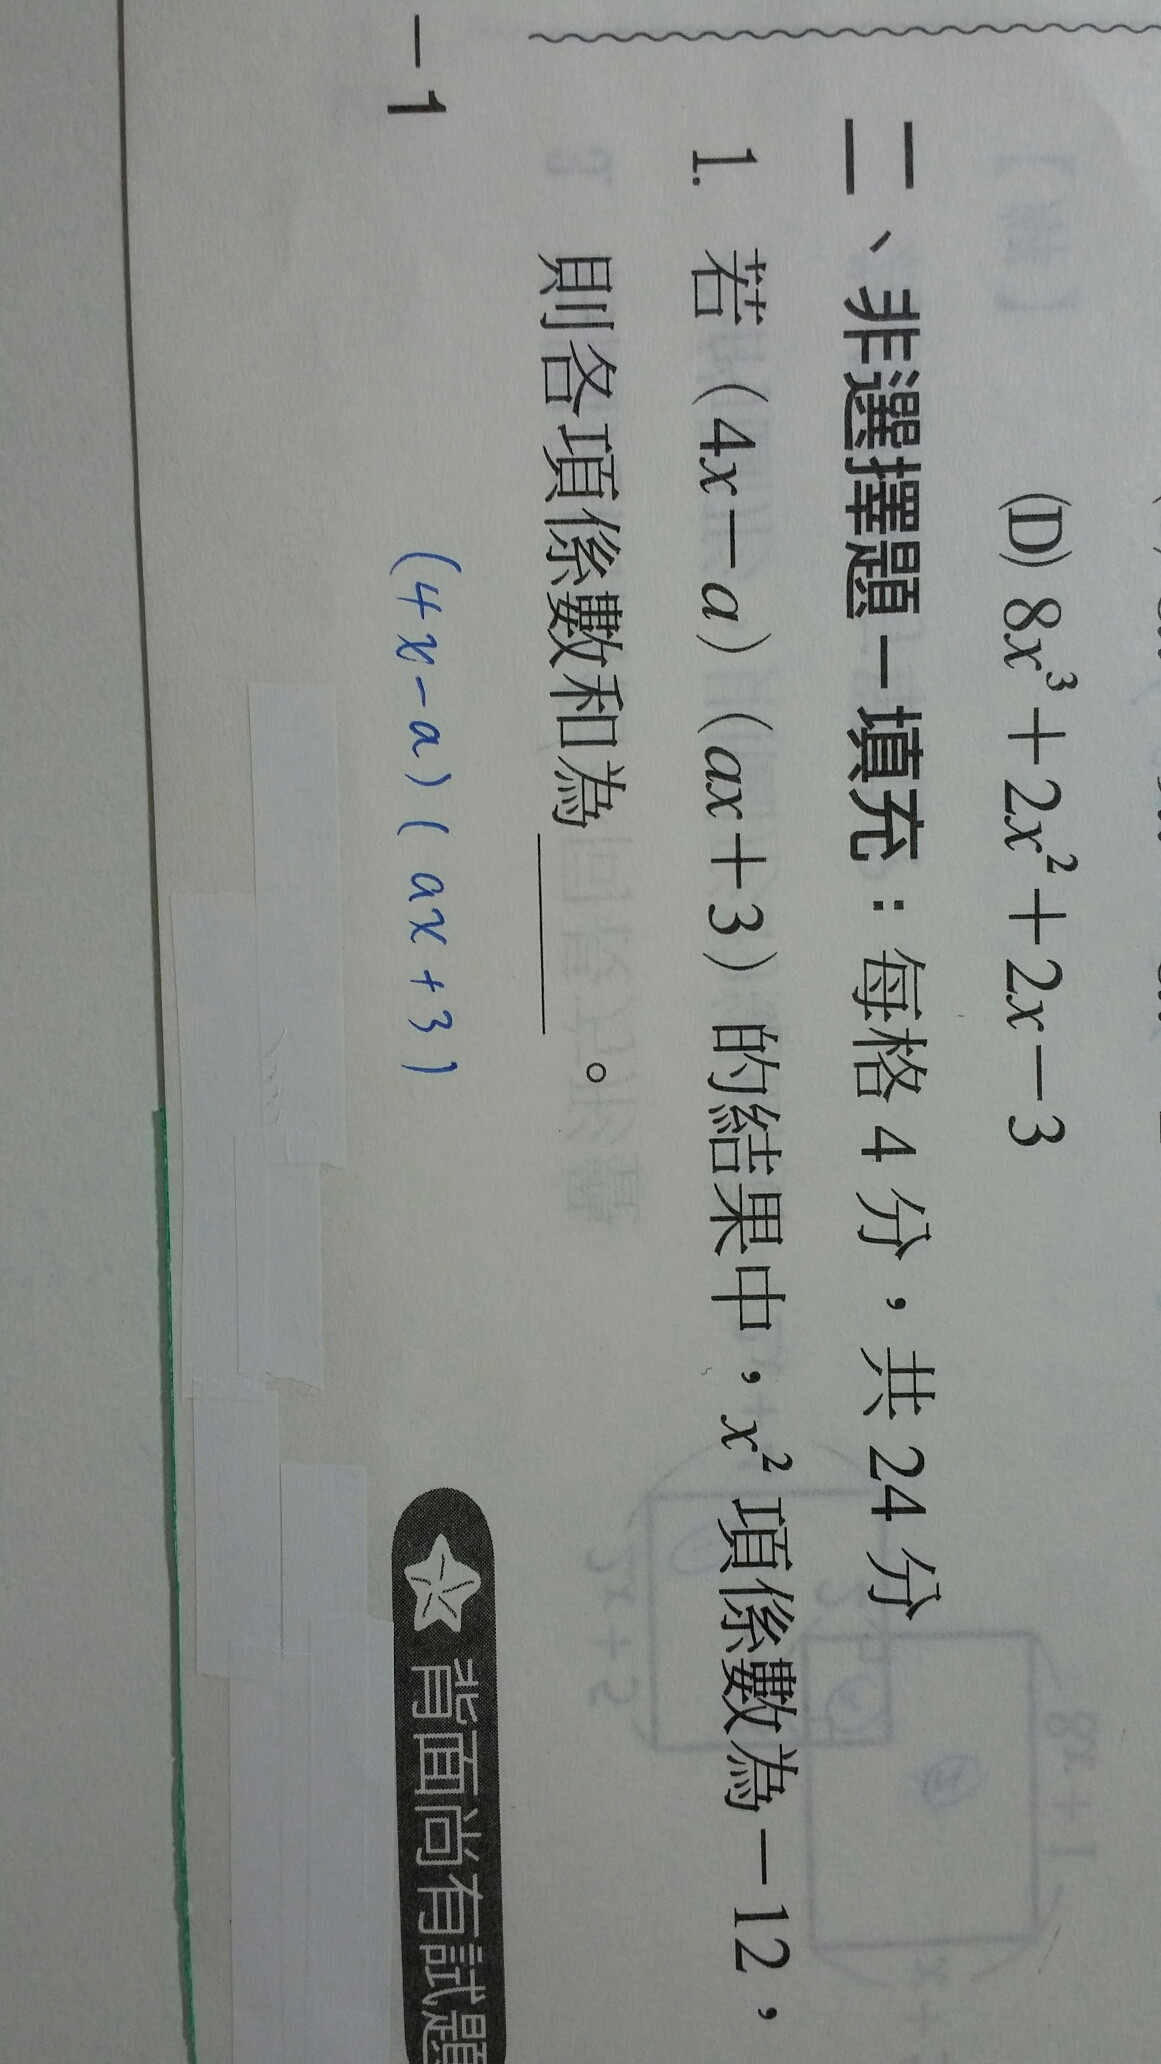 (D) 8x³＋2x²＋2x－3
二、非選擇題－填充：每格 4 分，共 24 分
1. 若（4x－a）（ax＋3）的結果中，x² 項係數為－12，
則各項係數和為＿＿＿＿。
(4x-a)(ax+3)
－1
背面尚有試題